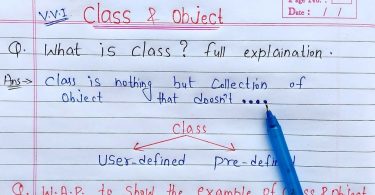 V.V.I Class & Object
Page No.:
Date: / /
Q. What is class? full explaination.
Ans→ Class is nothing but Collection of
Object that doesn't ....
Class
User-defined pre-defin
Q. W.A.P. to show the example of Class & Object